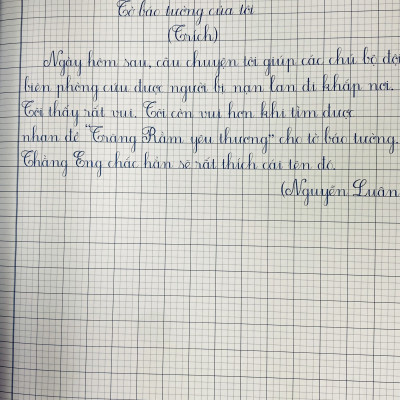 Tờ báo tường của tôi
(Trích)
Ngày hôm sau, câu chuyện tôi giúp các chú bộ đội
biên phòng cứu được người bị nạn lan đi khắp nơi.
Tôi thấy rất vui. Tôi còn vui hơn khi tìm được
nhan đề "Trăng Rằm yêu thương" cho tờ báo tường.
Thằng Eng chắc hẳn sẽ rất thích cái tên đó.
(Nguyễn Luân